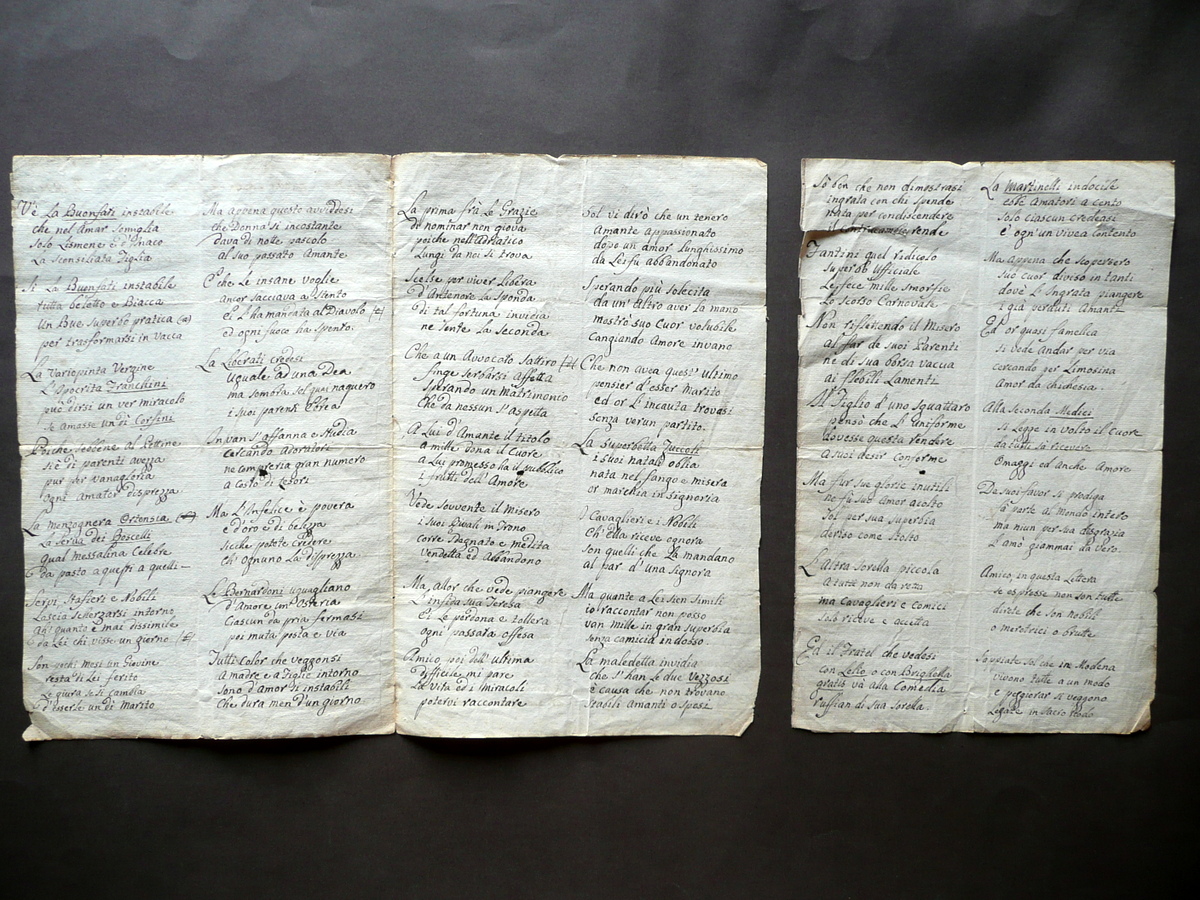 V'è La Buonfati instabile
che nel Amar Somiglia
Solo Lismene è d'Jnaco
La Sconsiliata Figlia
Si La Buonfati instabile
tutta beletto e Biacca
Un Bue Superbo pratica (a)
per trasformarsi in Vacca
La Variopinta Vergine
L'Ipocrita Franchini
può dirsi un ver miracolo
Se Amasse un dì Corsini
Poiche sebbene al
Sie di parenti avena
pur per Vanagloria
ogni amator disprezza
La menzognera Ortensia
La Serva dei Boscelli
Qual messalina Celebre
dà pasto a questi a quelli
Servi Staffieri e Nobili
Lascia Scherzarsi intorno
ah' quanto è mai dissimile
da Lei chi visse un giorno
Son pochi mesi un Giovine
resta di Lei ferito
Le giura se si cambia
d'esserle un dì Marito
Ma appena questo avviddesi
che Donna si incostante
dava di notte pascolo
al Suo passato Amante
E che Le insane Voglie
amor saciava a Stento
Ei L'ha mandata al Diavolo
ed ogni fuoco ha Spento
La Liberati credesi
Uguale ad una Dea
ma Somora Sol quai naquero
i Suoi parenti Ebrea
Invan S'affanna e Studia
Cercando Adoratori
ne Compreria gran numero
a Costo di tesori
Ma L'Infelice è povera
e d'oro e di belezza
Sicche potete Credere
Ch'ognuno La disprezza
Le Bernardoni uguagliano
d'Amore un'Osteria
Ciascun dà pria fermasi
poi muta posta e via
Tutti Color che veggonsi
a madre e a Figlie intorno
Sono d'amor Si instabili
Che dura men d'un giorno
La prima frà Le Grazie
di nominar non giova
poiche nell'Adriatico
Lungi da noi Si trova
Scelse per viver Libera
d'Antenore La Sponda
di tal fortuna invidia
ne Sente La Seconda
Che a un Avvocato Satiro
finge Serbarsi affetta
Sperando un Matrimonio
Che da nessun S'aspetta
A Lui d'Amante il titolo
a mille dona il Cuore
a Lui promesso ha il pubblico
i frutti dell'Amore
Vede Sovvente il Misero
i Suoi Rivali in Trono
Corre Sdagnato e medita
Vendetta ed abbandono
Ma, allor che vede piangere
L'infida Sua Teresa
Ei Le perdona e tollera
ogni passata offesa
Amico, poi dell'ultima
difficile mi pare
La Vita ed i miracoli
potervi raccontare
Sol vi dirò che un tenero
Amante appassionato
dopo un amor Lunghissimo
da Lei fu abbandonato
Sperando più Solecita
da un'altro aver La mano
mostrò Suo Cuor Volubile
Cangiando Amore invano
Che non avea quest'ultimo
pensier d'esser Marito
ed or L'incauta trovasi
Senza verun partito
La Superbetta Zuccoli
i Suoi natali oblia
nata nel fango e misera
or marchia in Signoria
I Cavaglieri e i Nobili
Ch'ella riceve ognora
Son quelli che La mandano
al par d'una Signora
Ma quante a Lei Sien Simili
io raccontar non posso
van mille in gran Superbia
Senza camicia indosso
La maledetta invidia
che S'han le due Vezzosi
è causa che non trovano
Stabili Amanti o Sposi
Sò ben che non dimostrasi
ingrata con chi Spende
nata per condiscendere
Fantini quel ridicolo
Superbo Uffiziale
Le fece mille Smorfie
Lo Scorso Carnovale
Non riflettendo il Misero
al far de Suoi Parenti
ne di Sua borsa vacua
ai flebili Lamenti
Al Figlio d'uno Squattaro
pensò che L'Uniforme
dovesse questa rendere
a Suoi desir Conforme
Ma fur Sue glorie inutili
ne fu Suo Amor acolto
Sol per Sua Superbia
deriso come Stolto
L'altra Sorella piccola
ma Cavaglieri e Comici
Sol riceve e acetta
Ed il Fratel che vedesi
con Lelio o con Brigdella
gratis và alla Comedia
ruffian di Sua Sorella
La Martinelli indocile
esse Amatori a cento
Solo ciascun credeasi
è ogn'un vivea contento
Ma Appena che Scopersero
Suo Cuor diviso in tanti
dovè L'Ingrata piangere
i già perduti Amanti
Ed'or quasi famelica
Si vede Andar per via
cercando per Limosina
Amor da chichesia
Alla Seconda Medici
Si Legge in Volto il Cuore
da tutti Sà ricevere
Omaggi ed Anche Amore
De Suoi favor Si prodiga
fà parte al Mondo intero
ma niun per Sua disgrazia
L'amò giammai da Vero
Amico in questa Lettera
Se espresse non Son tutte
direte che Son nobili
o meretrici o brutte
Sappiate Sol che in Modena
vivono tutte a un modo
e peggiorar Si veggono
Legate in Sacro Nodo